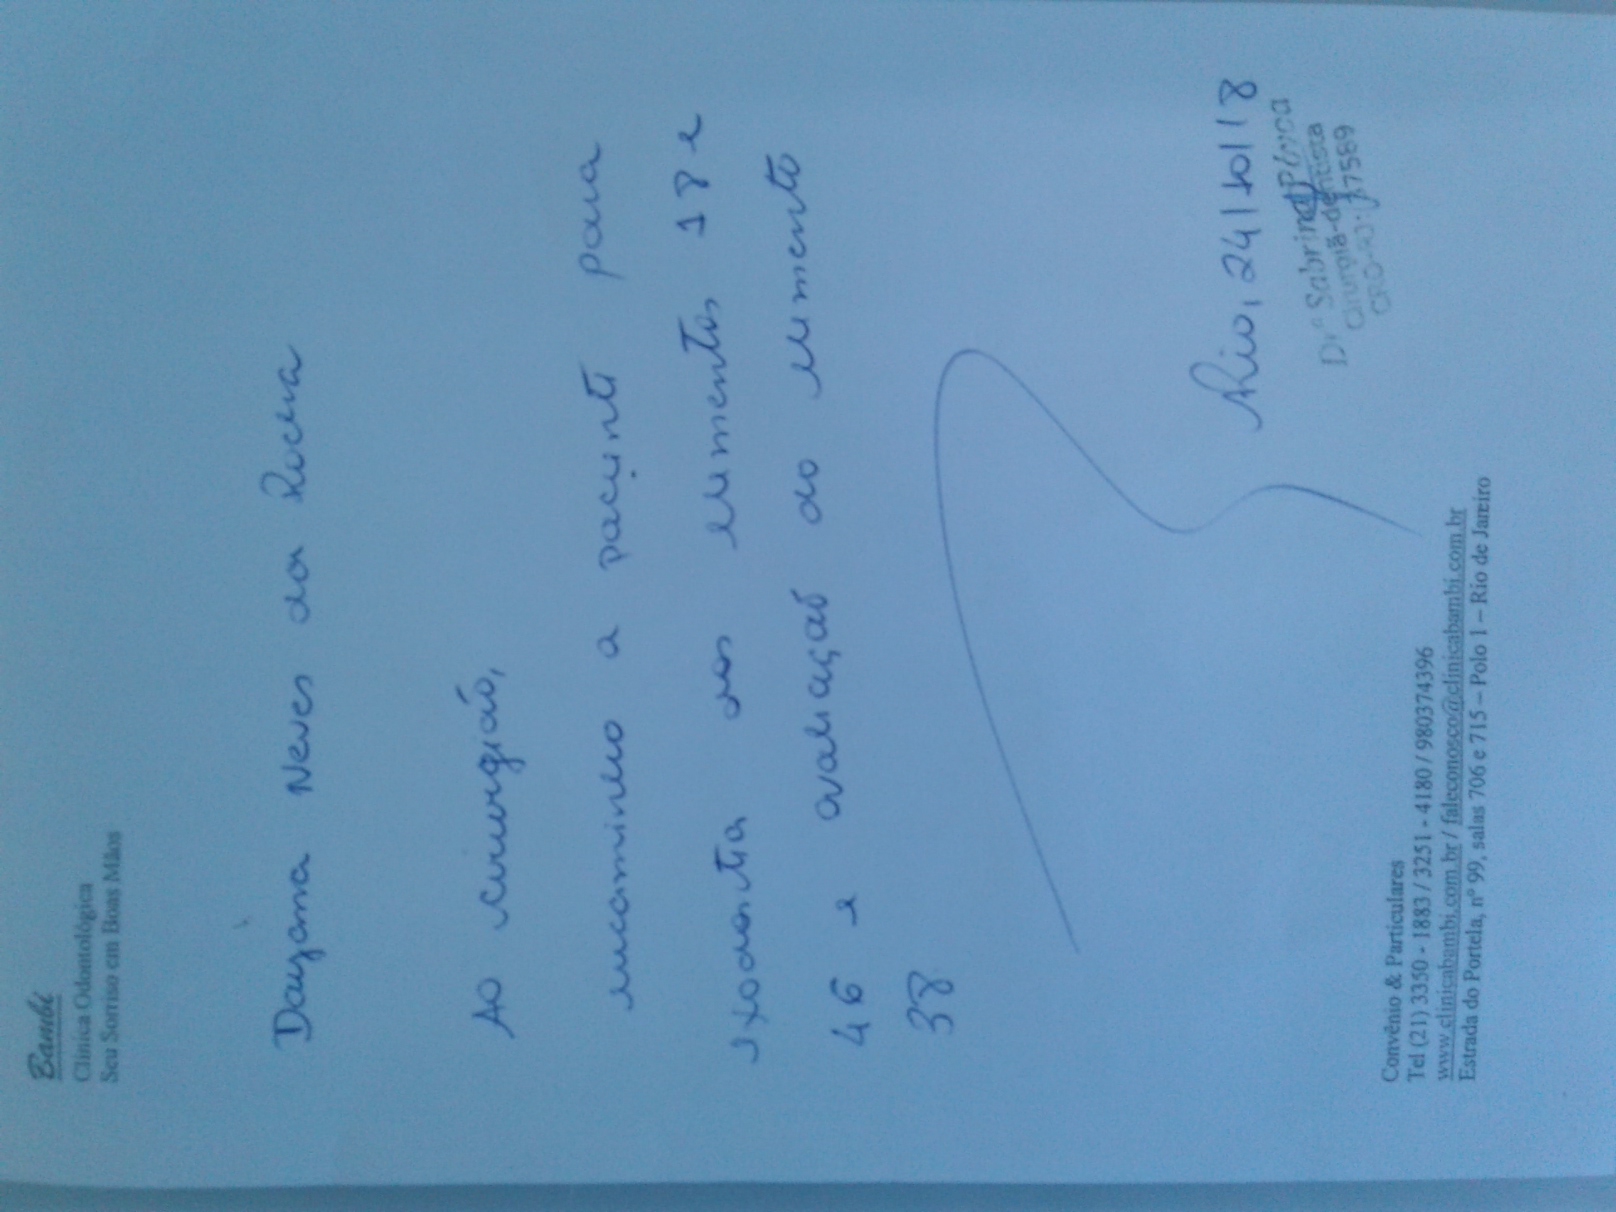 Bambi
Clínica Odontológica
Seu Sorriso em Boas Mãos
Dayana Neves da Rocha
Ao cirurgião,
encaminho a paciente para
exodontia dos elementos 18 e
46 e avaliação do elemento
38
Rio, 24/10/18
Drª Sabrina
Cirurgiã-dentista
CRO-RJ: 37589
Convênio & Particulares
Tel (21) 3350 - 1883 / 3251 - 4180 / 980374396
www.clinicabambi.com.br / faleconosco@clinicabambi.com.br
Estrada do Portela, nº 99, salas 706 e 715 – Polo 1 – Rio de Janeiro